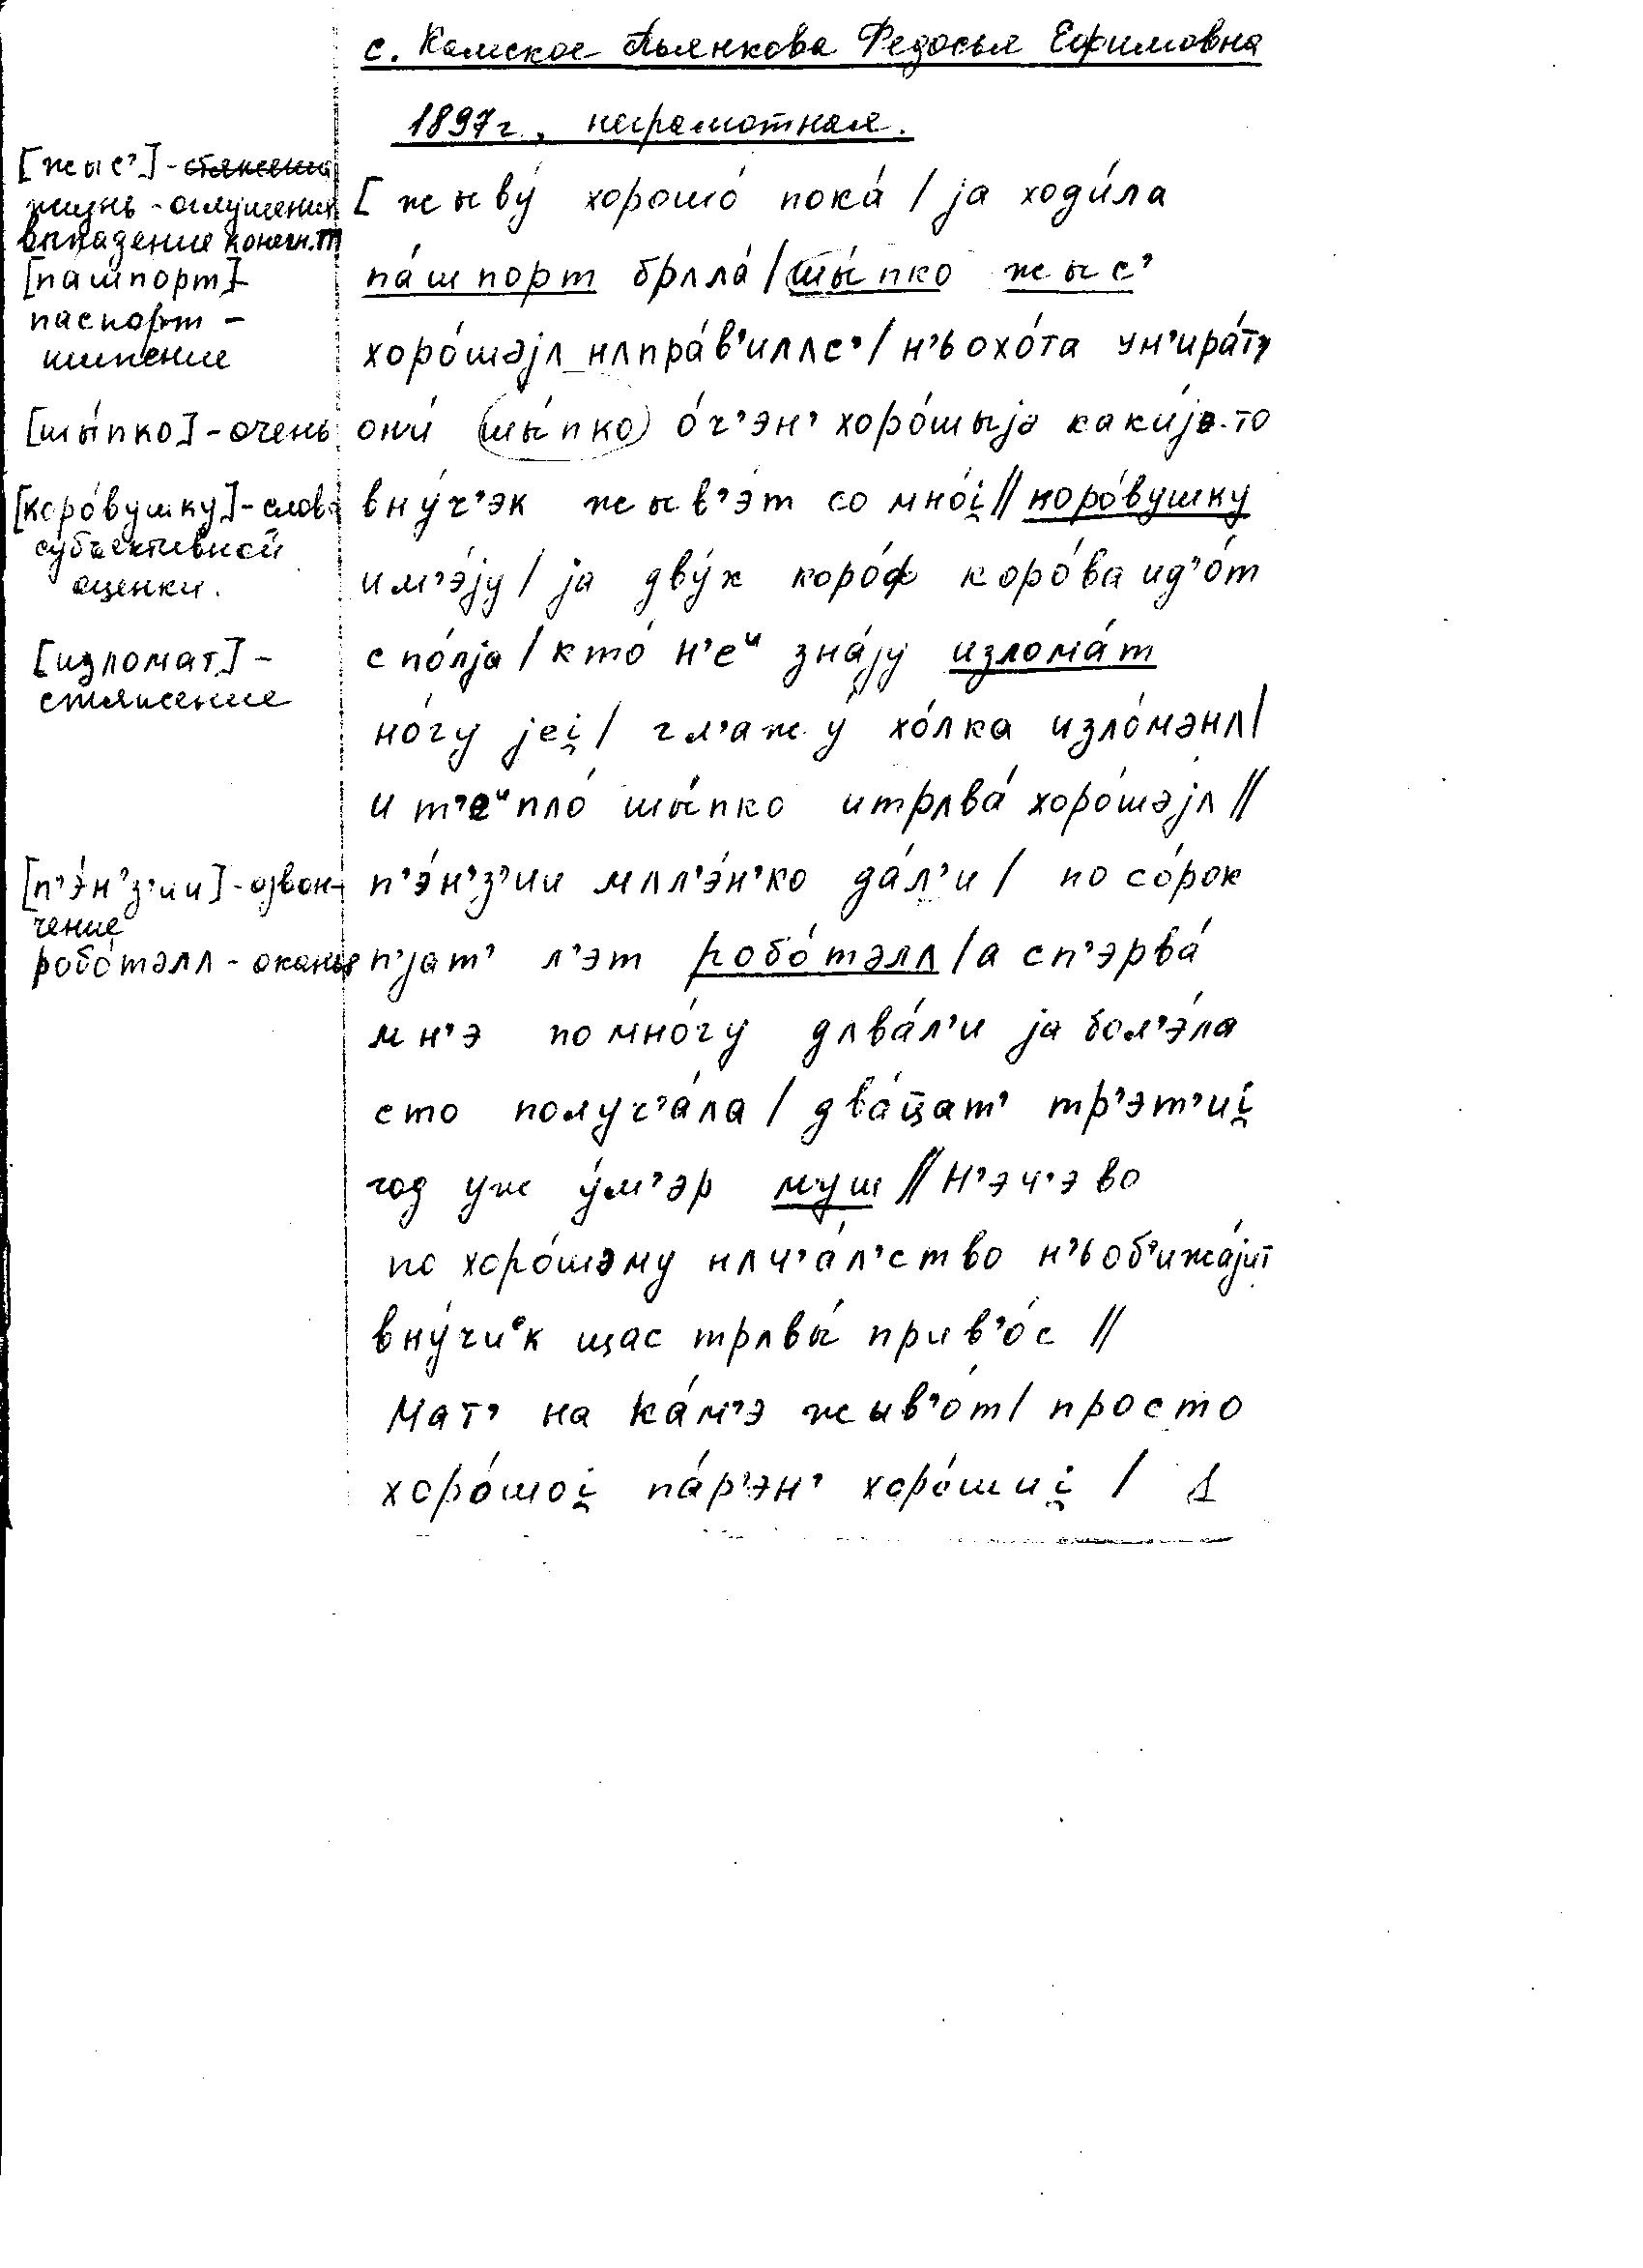 с. Камское Пьянкова Федосья Ефимовна
1897 г., неграмотная.
[жыс’] - стяжения
жизнь - оглушение
выпадение конечн. т
[пашпорт]-
паспорт -
шипение
[шы́пко] - очень
[коро́вушку] - слово
субъективной
оценки.
[изломат] -
стяжение
[п’э́н’з’ии] - озвон-
чение
робо́тəлʌ - оканье
[ жыву́ хорошо́ пока́ / ја ходи́ла
па́шпорт брʌла́ / шы́пко жыс’
хоро́шəјʌ нʌпра́в’илʌс’ / н’ь охо́та ум’ира́т’
они́ шы́пко о́ч’эн’ хоро́шыјə каки́јə-то
вну́ч’эк жыв’э́т со мно́i̯ // коро́вушку
им’э́ју / ја дву́х коро́ф коро́ва ид’о́т
с по́лја / кто́ н’еⁱ зна́ју излома́т
но́гу јеi̯ / гл’ажу́ хо́лка изло́мəнʌ /
и т’еᶸпло́ шы́пко и трʌва́ хоро́шəјʌ //
п’э́н’з’ии мʌл’э́н’ко да́л’и / по со́рок
п’јат’ л’эт робо́тəлʌ / а сп’эрва́
мн’э по мно́гу дʌва́л’и ја бол’э́ла
сто получ’а́ла / два́цат’ тр’эт’иi̯
год уж у́м’эр муш // Н’эч’эво
по хоро́шəму нʌч’а́л’ство н’ь об’ижа́јит
вну́чиᵉк щас трʌвы́ прив’о́с //
Мат’ на ка́м’э жыв’о́т / просто
хоро́шоi̯ па́р’эн’ хоро́шиi̯ /